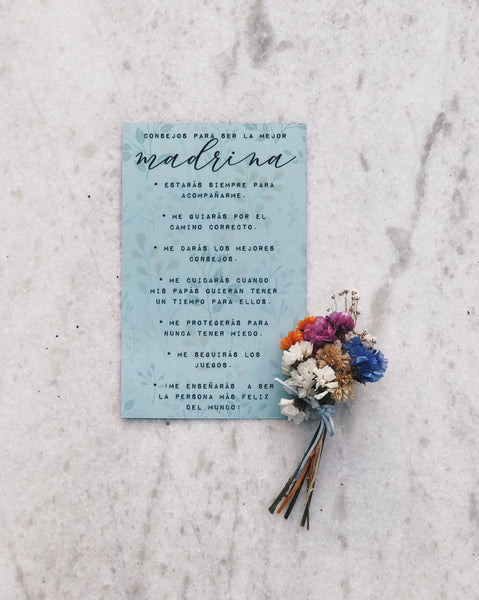 CONSEJOS PARA SER LA MEJOR
madrina
* ESTARÁS SIEMPRE PARA
ACOMPAÑARME.
* ME GUIARÁS POR EL
CAMINO CORRECTO.
* ME DARÁS LOS MEJORES
CONSEJOS.
* ME CUIDARÁS CUANDO
MIS PAPÁS QUIERAN TENER
UN TIEMPO PARA ELLOS.
* ME PROTEGERÁS PARA
NUNCA TENER MIEDO.
* ME SEGUIRÁS LOS
JUEGOS.
* ¡ME ENSEÑARÁS A SER
LA PERSONA MÁS FELIZ
DEL MUNDO!